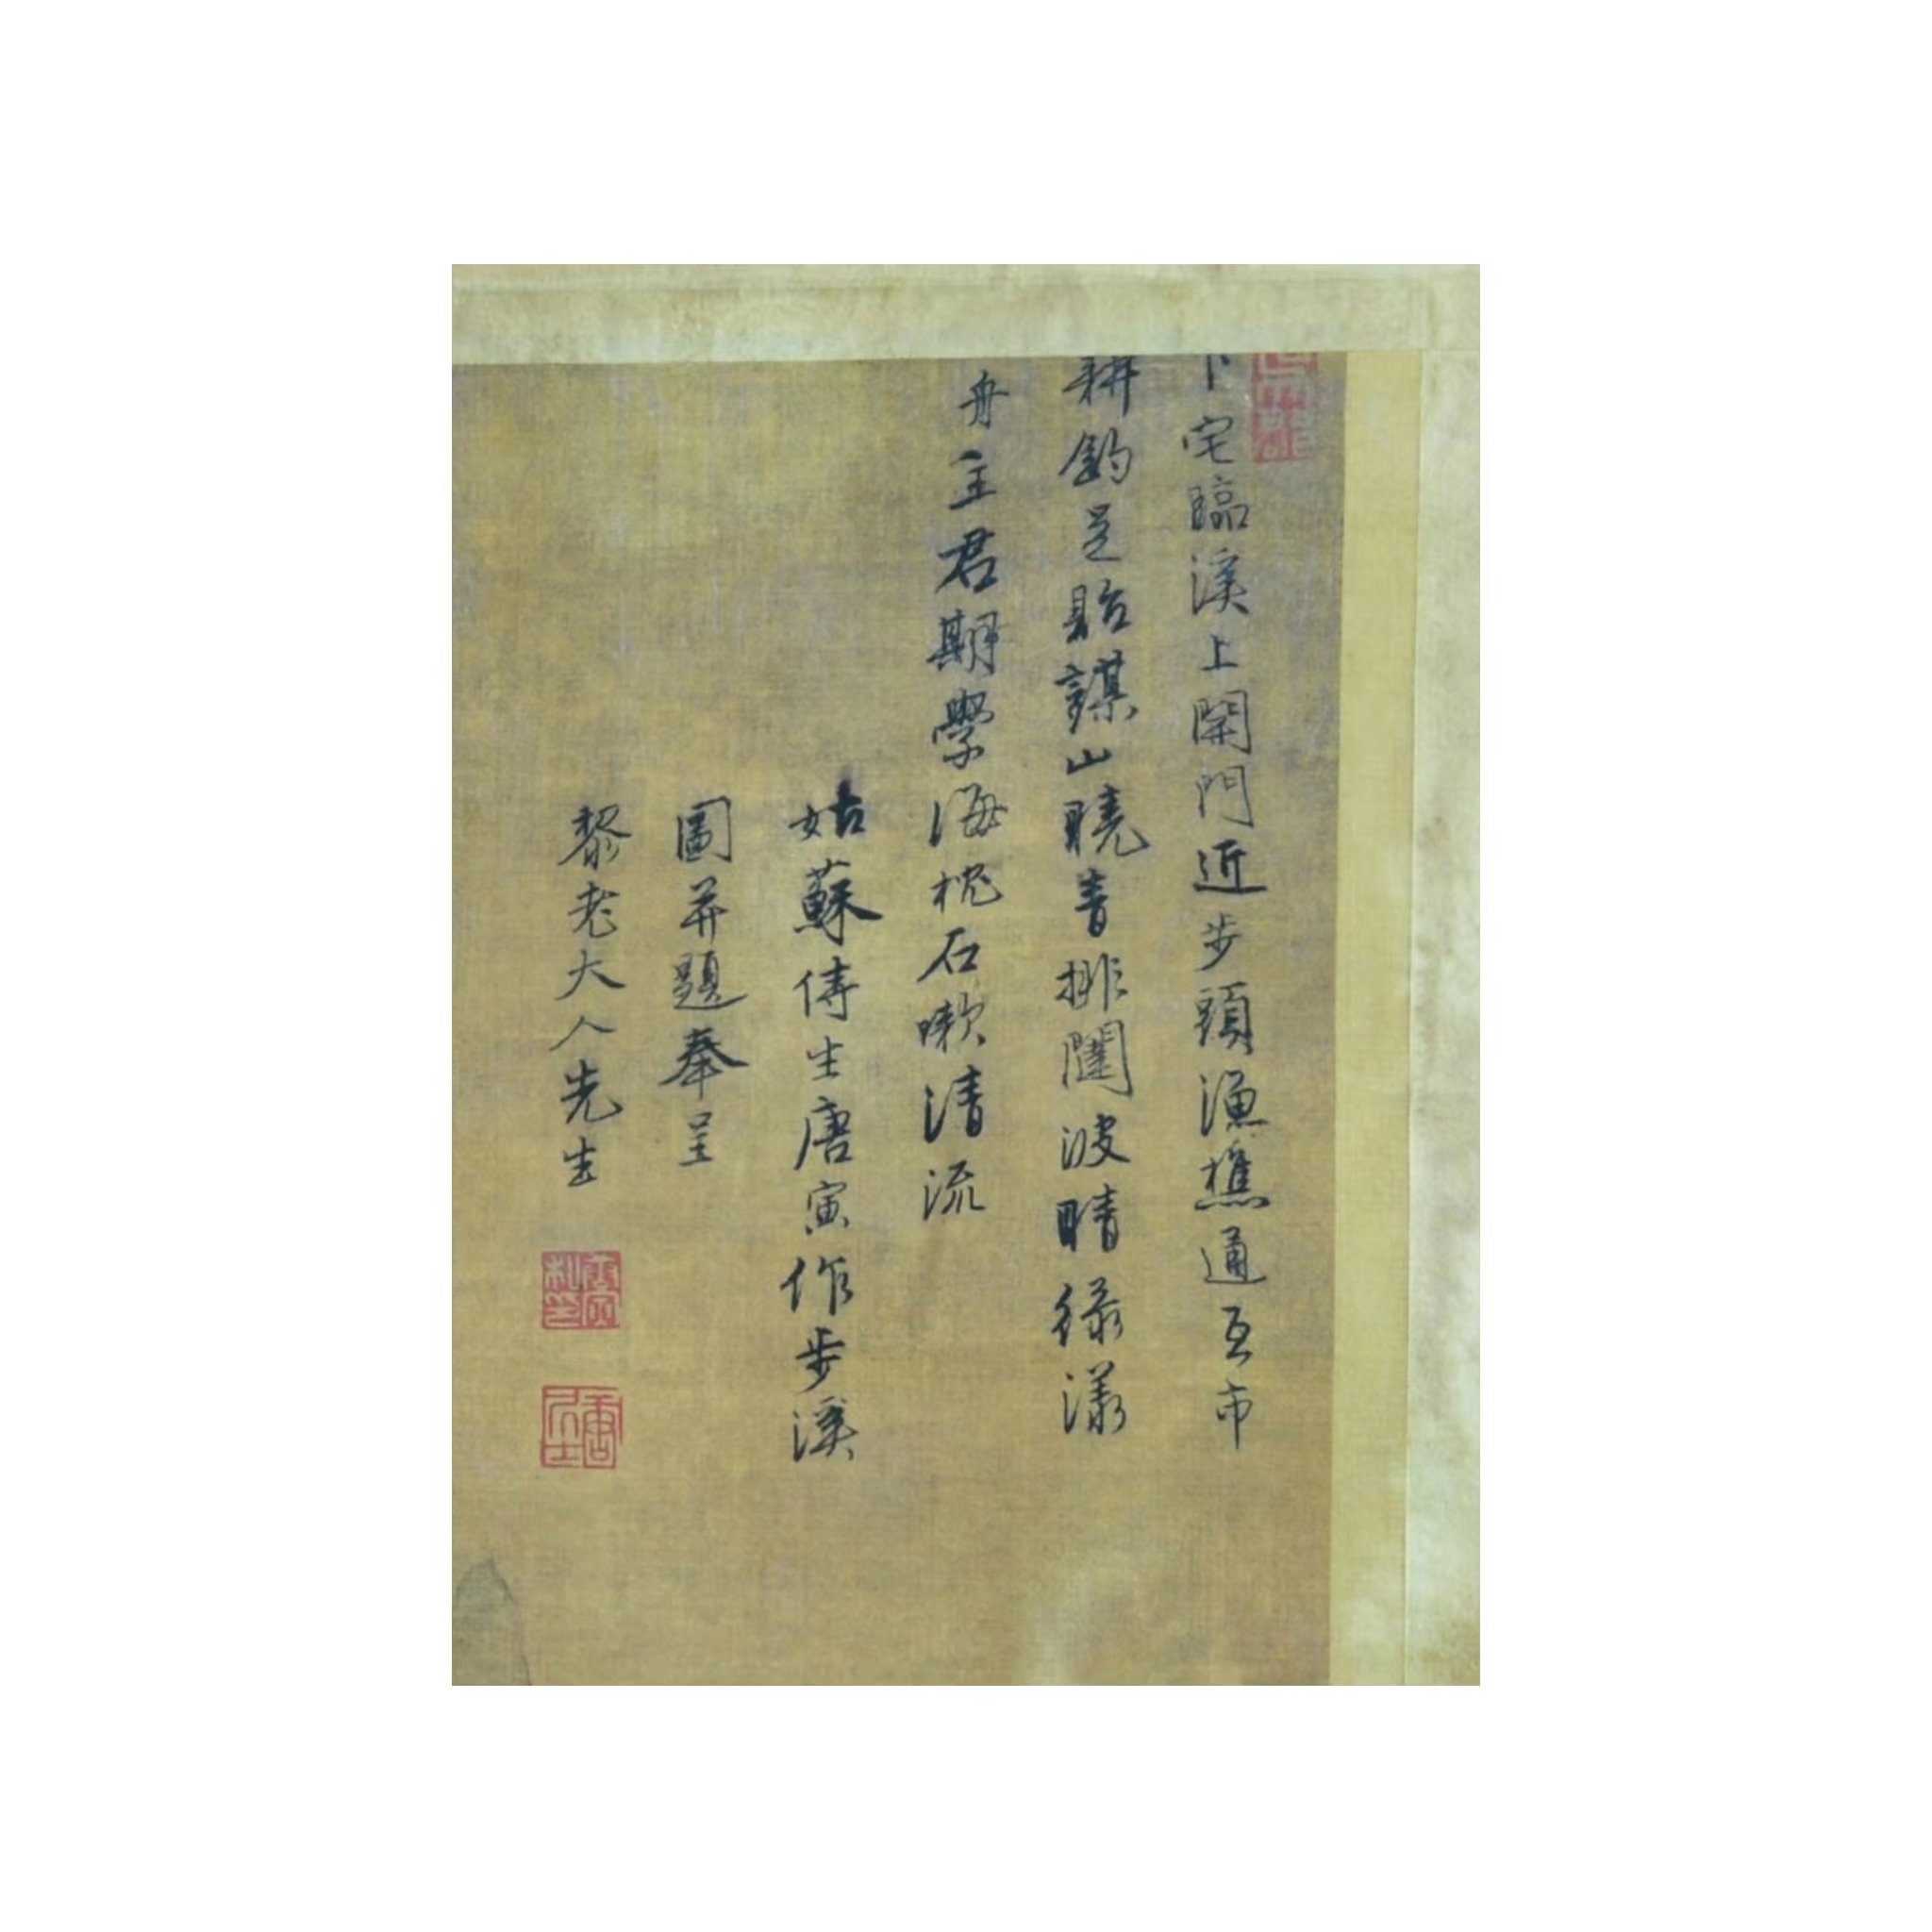 卜宅臨溪上開門近步頭漁樵通互市
耕釣足貽謀山曉青排闥波晴綠漾
舟主君期學海枕石嗽清流
姑蘇儔生唐寅作步溪
圖并題奉呈
黎老大人先生